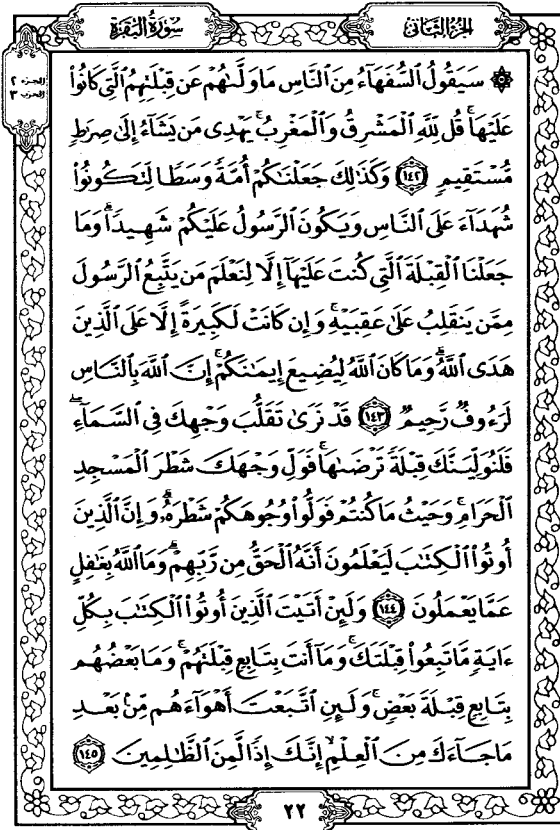 سُورَةُ البَقَرَةِ
الجزء الثاني
الجزء ٢
الحزب ٣
۞ سَيَقُولُ ٱلسُّفَهَآءُ مِنَ ٱلنَّاسِ مَا وَلَّىٰهُمْ عَن قِبْلَتِهِمُ ٱلَّتِى كَانُوا۟
عَلَيْهَا ۚ قُل لِّلَّهِ ٱلْمَشْرِقُ وَٱلْمَغْرِبُ ۚ يَهْدِى مَن يَشَآءُ إِلَىٰ صِرَٰطٍ
مُّسْتَقِيمٍ ١٤٢ وَكَذَٰلِكَ جَعَلْنَٰكُمْ أُمَّةً وَسَطًا لِّتَكُونُوا۟
شُهَدَآءَ عَلَى ٱلنَّاسِ وَيَكُونَ ٱلرَّسُولُ عَلَيْكُمْ شَهِيدًا ۗ وَمَا
جَعَلْنَا ٱلْقِبْلَةَ ٱلَّتِى كُنتَ عَلَيْهَآ إِلَّا لِنَعْلَمَ مَن يَتَّبِعُ ٱلرَّسُولَ
مِمَّن يَنقَلِبُ عَلَىٰ عَقِبَيْهِ ۚ وَإِن كَانَتْ لَكَبِيرَةً إِلَّا عَلَى ٱلَّذِينَ
هَدَى ٱللَّهُ ۗ وَمَا كَانَ ٱللَّهُ لِيُضِيعَ إِيمَٰنَكُمْ ۚ إِنَّ ٱللَّهَ بِٱلنَّاسِ
لَرَءُوفٌ رَّحِيمٌ ١٤٣ قَدْ نَرَىٰ تَقَلُّبَ وَجْهِكَ فِى ٱلسَّمَآءِ ۖ
فَلَنُوَلِّيَنَّكَ قِبْلَةً تَرْضَىٰهَا ۚ فَوَلِّ وَجْهَكَ شَطْرَ ٱلْمَسْجِدِ
ٱلْحَرَامِ ۚ وَحَيْثُ مَا كُنتُمْ فَوَلُّوا۟ وُجُوهَكُمْ شَطْرَهُۥ ۗ وَإِنَّ ٱلَّذِينَ
أُوتُوا۟ ٱلْكِتَٰبَ لَيَعْلَمُونَ أَنَّهُ ٱلْحَقُّ مِن رَّبِّهِمْ ۗ وَمَا ٱللَّهُ بِغَٰفِلٍ
عَمَّا يَعْمَلُونَ ١٤٤ وَلَئِنْ أَتَيْتَ ٱلَّذِينَ أُوتُوا۟ ٱلْكِتَٰبَ بِكُلِّ
ءَايَةٍ مَّا تَبِعُوا۟ قِبْلَتَكَ ۚ وَمَآ أَنتَ بِتَابِعٍ قِبْلَتَهُمْ ۚ وَمَا بَعْضُهُم
بِتَابِعٍ قِبْلَةَ بَعْضٍ ۚ وَلَئِنِ ٱتَّبَعْتَ أَهْوَآءَهُم مِّنۢ بَعْدِ
مَا جَآءَكَ مِنَ ٱلْعِلْمِ ۙ إِنَّكَ إِذًا لَّمِنَ ٱلظَّٰلِمِينَ ١٤٥
٢٢